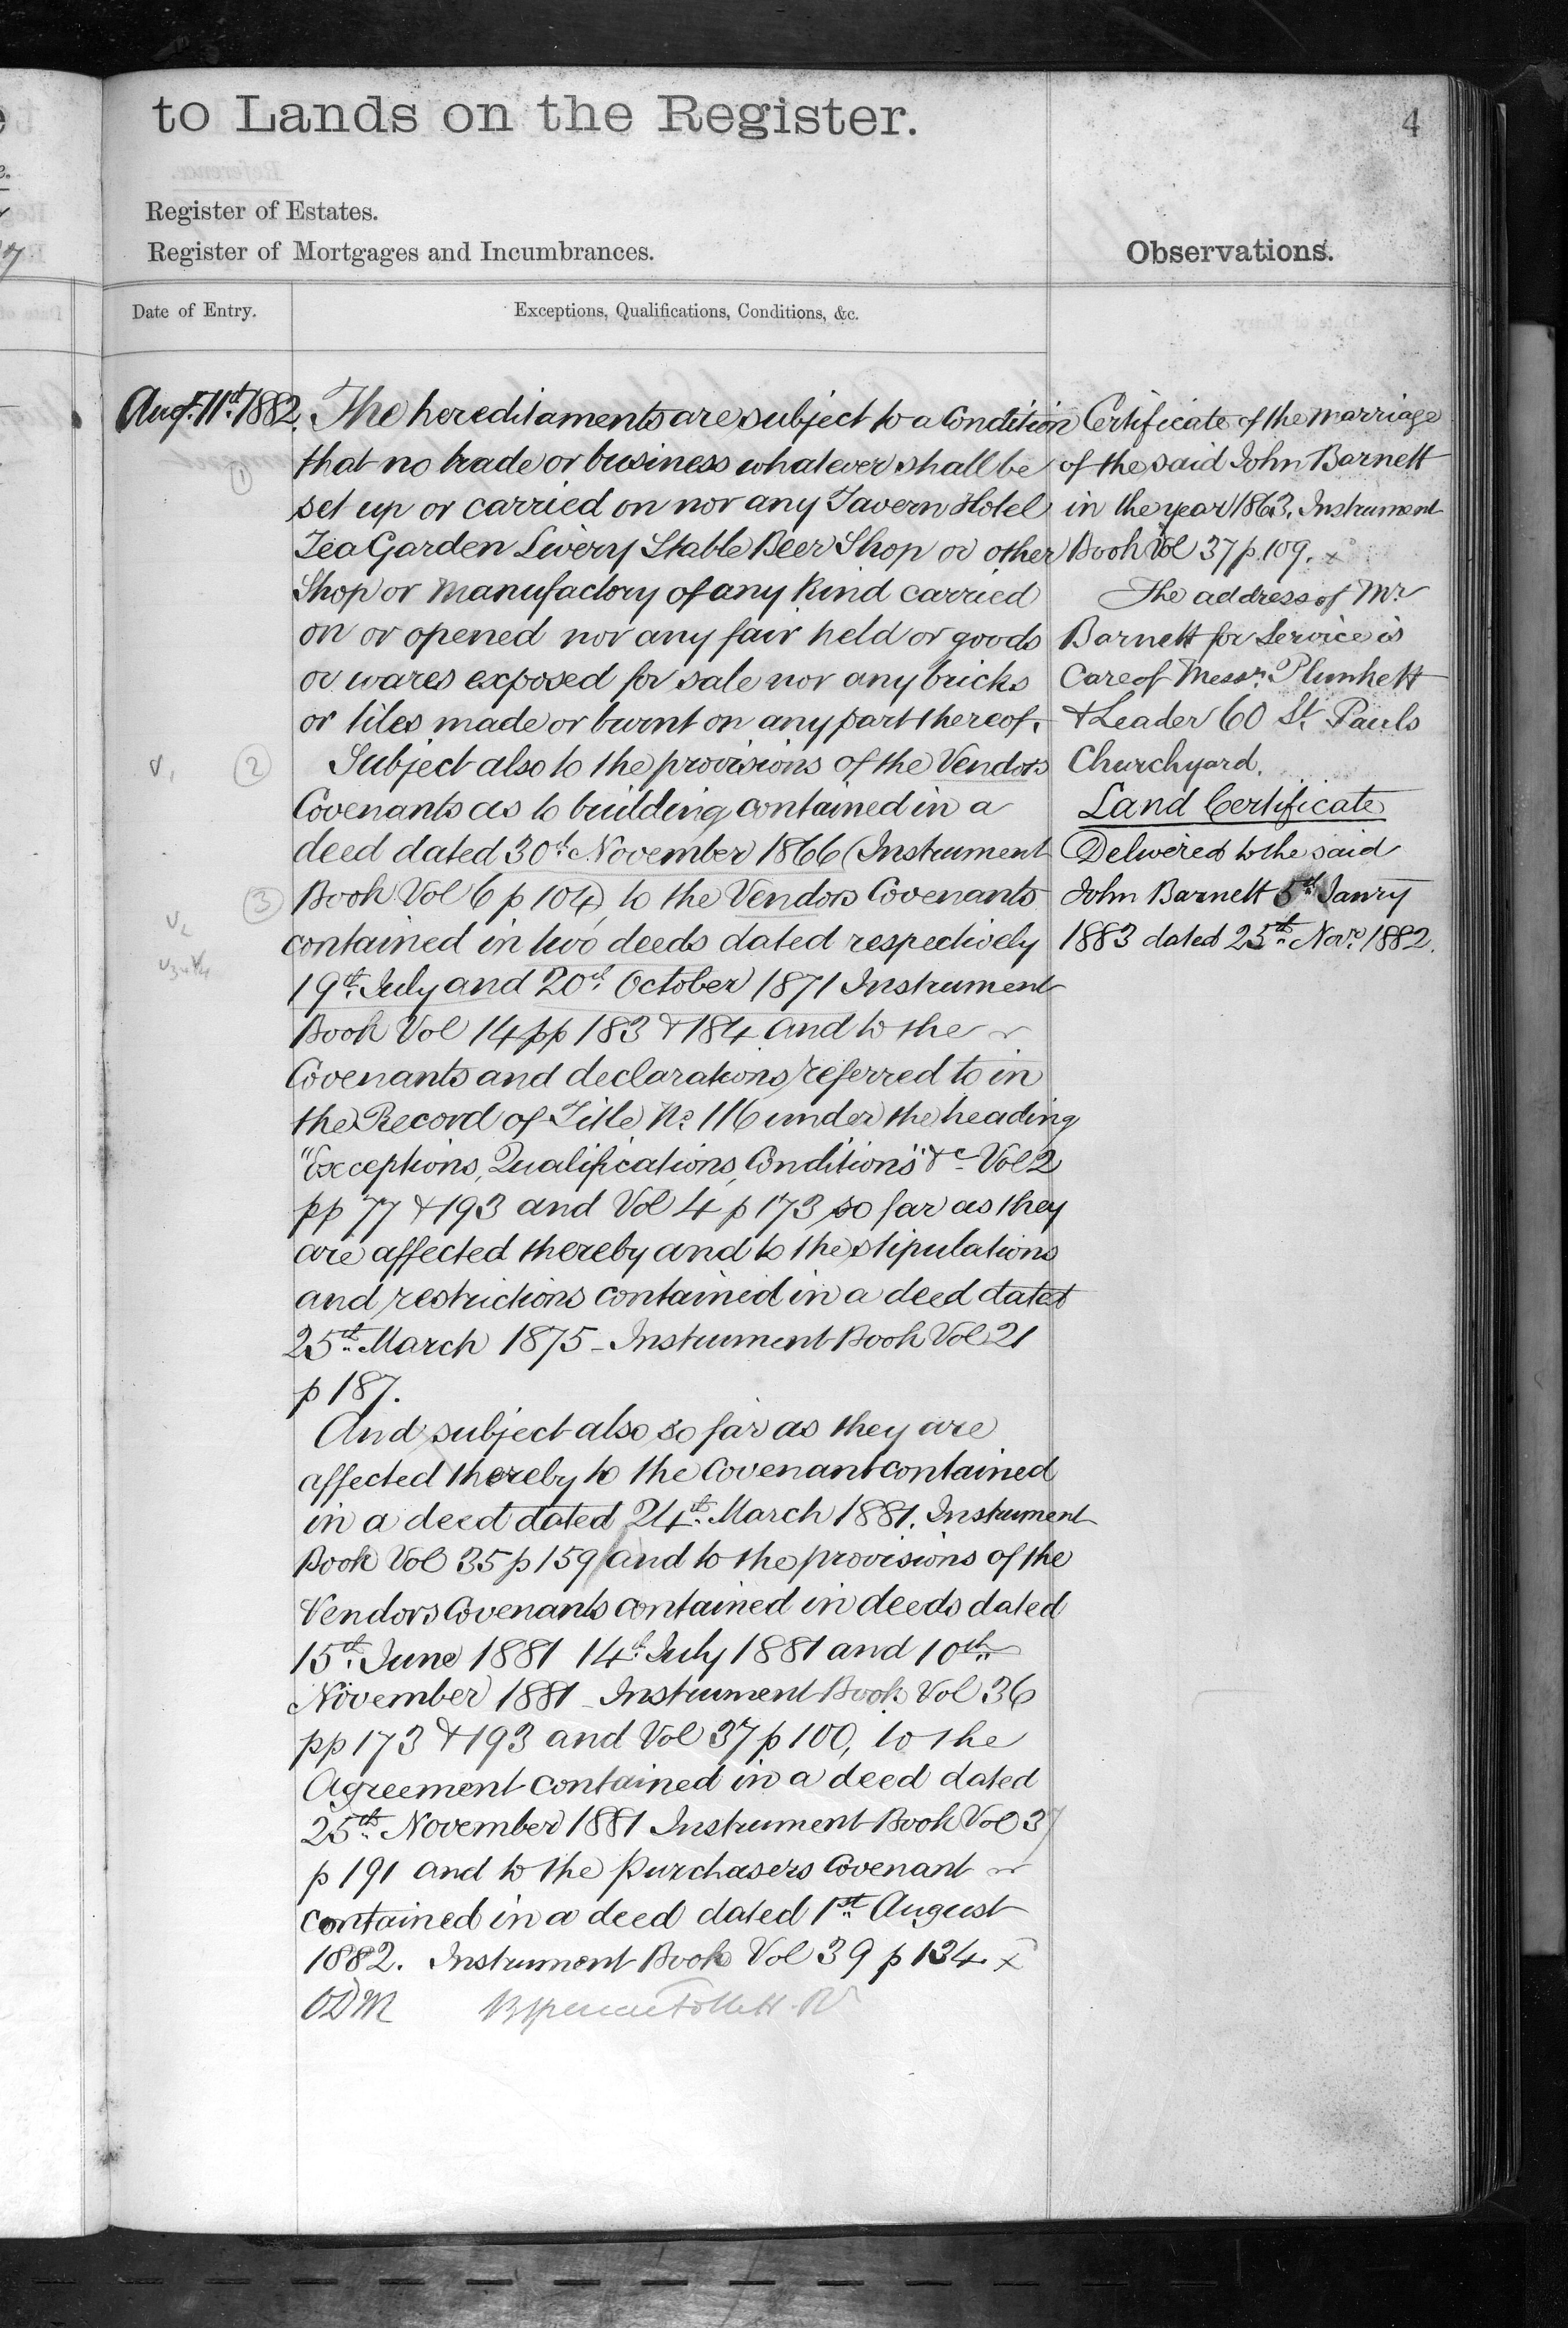 to Lands on the Register.
4
Register of Estates.
Register of Mortgages and Incumbrances.
Observations.
Date of Entry.
Exceptions, Qualifications, Conditions, &c.
Augt. 11th 1882.
The hereditaments are subject to a Condition
that no trade or business whatever shall be
set up or carried on nor any Tavern Hotel
Tea Garden Livery Stable Beer Shop or other
Shop or Manufactory of any kind carried
on or opened nor any fair held or goods
or wares exposed for sale nor any bricks
or tiles made or burnt on any part thereof.
Subject also to the provisions of the Vendors
Covenants as to building contained in a
deed dated 30th November 1866 (Instrument
Book Vol 6 p 104) to the Vendors Covenants
contained in two deeds dated respectively
19th July and 20th October 1871 Instrument
Book Vol 14 pp 183 & 184 and to the
Covenants and declarations referred to in
the Record of Title No 116 under the heading
"Exceptions, Qualifications, Conditions" &c Vol 2
pp 77 & 193 and Vol 4 p 173 so far as they
are affected thereby and to the stipulations
and restrictions contained in a deed dated
25th March 1875 - Instrument Book Vol 21
p 187.
And subject also so far as they are
affected thereby to the Covenant contained
in a deed dated 24th March 1881. Instrument
Book Vol 35 p 159 and to the provisions of the
Vendors Covenants contained in deeds dated
15th June 1881 14th July 1881 and 10th
November 1881 - Instrument Book Vol 36
pp 173 & 193 and Vol 37 p 100, to the
Agreement contained in a deed dated
25th November 1881 Instrument Book Vol 37
p 191 and to the Purchasers Covenant
contained in a deed dated 1st August
1882. Instrument Book Vol 39 p 134. x
ODM
1
2
3
Certificate of the Marriage
of the said John Barnett
in the year 1863. Instrument
Book Vol 37 p. 109. x
The address of Mr
Barnett for Service is
Care of Messrs. Plunkett
& Leader 60 St. Pauls
Churchyard.
Land Certificate
Delivered to the said
John Barnett 5th Janry
1883 dated 25th Novr. 1882.